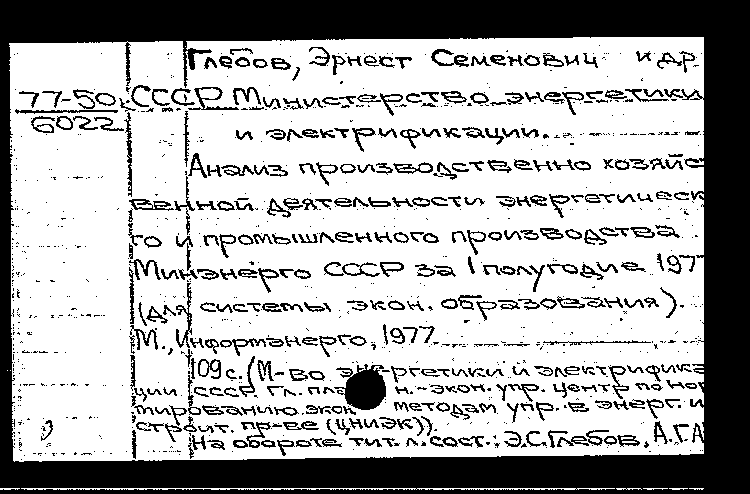 Глебов, Эрнест Семенович и др
77-50 СССР Министерство энергетики
6022 и электрификации.
Анализ производственно хозяйс
венной деятельности энергетическ
го и промышленного производства
Минэнерго СССР за I полугодие 197
(для системы экон. образования).
М., Информэнерго, 1977
109 с. (М-во энергетики и электрифика
ции СССР. Гл. пла н.-экон. упр. Центр по нор
тированию. экон методам упр. в энерг. и
строит. пр-ве (ЦНИЭК)).
На обороте тит. л. сост.: Э.С. Глебов, А.Г.